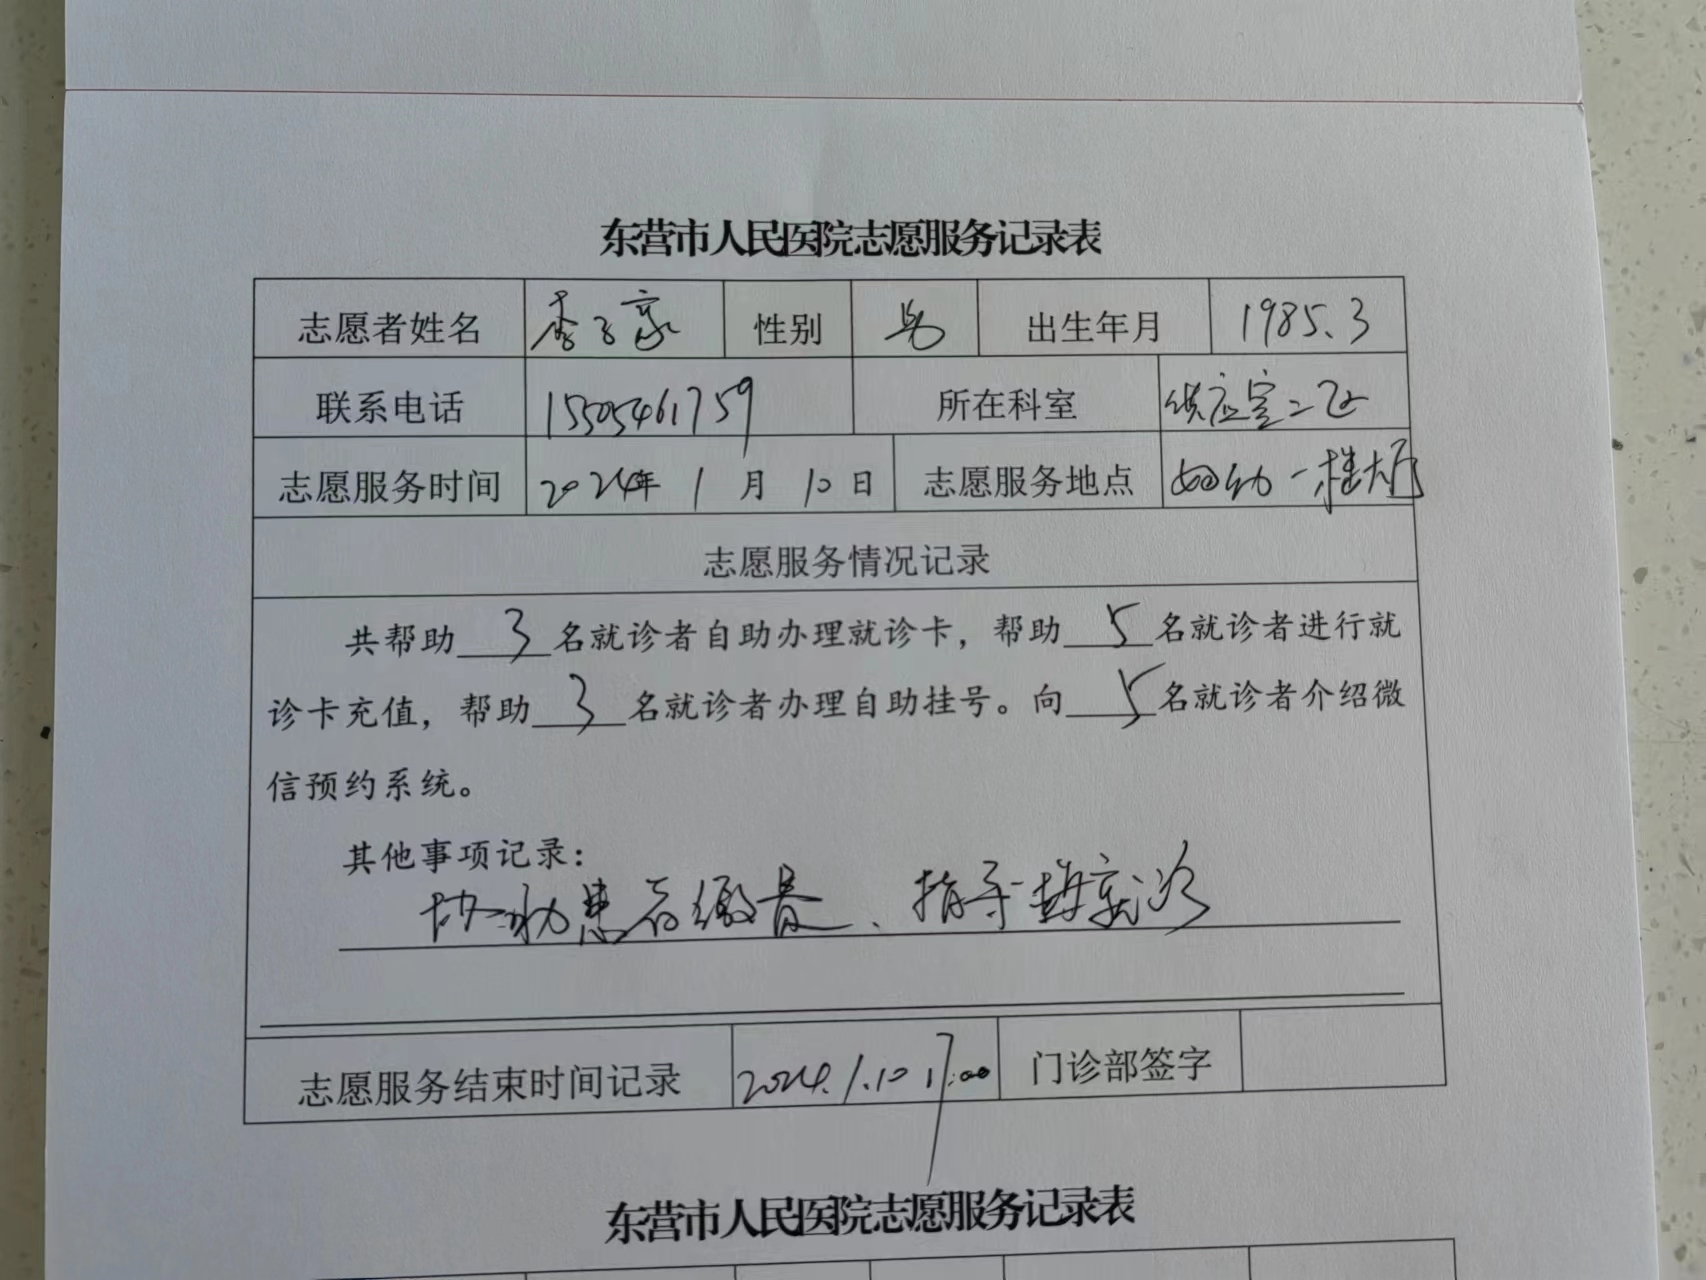 东营市人民医院志愿服务记录表
志愿者姓名 李子豪 性别 男 出生年月 1985.3
联系电话 15505461759 所在科室 供应室二区
志愿服务时间 2024年 1 月 10 日 志愿服务地点 妇幼一楼大厅
志愿服务情况记录
共帮助 3 名就诊者自助办理就诊卡，帮助 5 名就诊者进行就
诊卡充值，帮助 3 名就诊者办理自助挂号。向 5 名就诊者介绍微
信预约系统。
其他事项记录：
协助患者缴费、指导 就诊
志愿服务结束时间记录 2024.1.10 17:00 门诊部签字
东营市人民医院志愿服务记录表